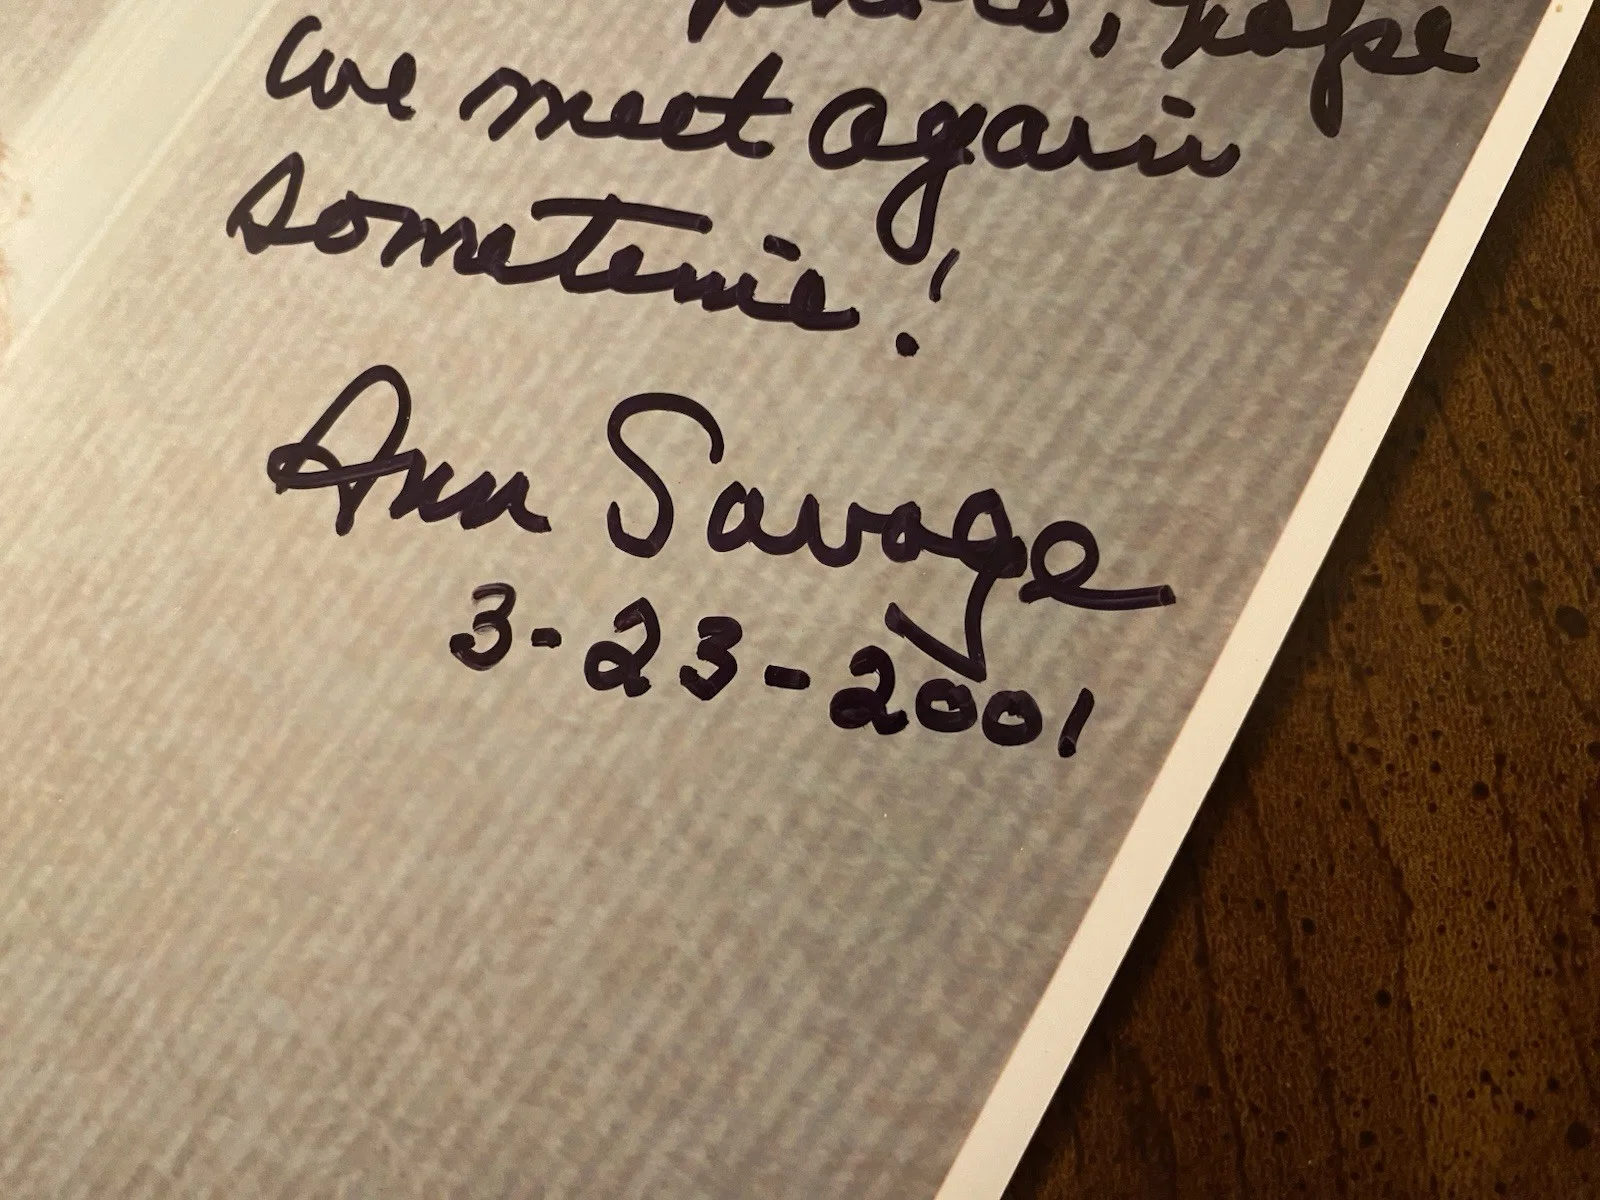 photo, hope
we meet again
sometime!
Ann Savage
3-23-2001